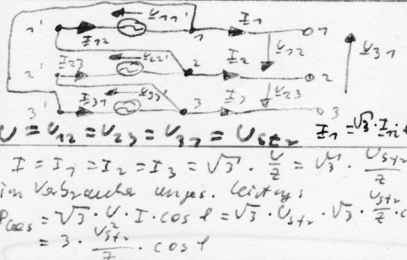 1' I̲12 U̲11' 1 I̲1 1
2' I̲23 U̲22' 2 I̲2 U̲12 2 U̲31
3' I̲31 U̲33' 3 I̲3 U̲23 3
U = U12 = U23 = U31 = Ustr I1 = √3 ·
I = I1 = I2 = I3 = √3 · U/Z = √3 · Ustr/Z
im Verbraucher umges. Leistung:
Pges = √3 · U · I · cos φ = √3 · Ustr · √3 · Ustr/Z · c
= 3 · Ustr²/Z · cos φ